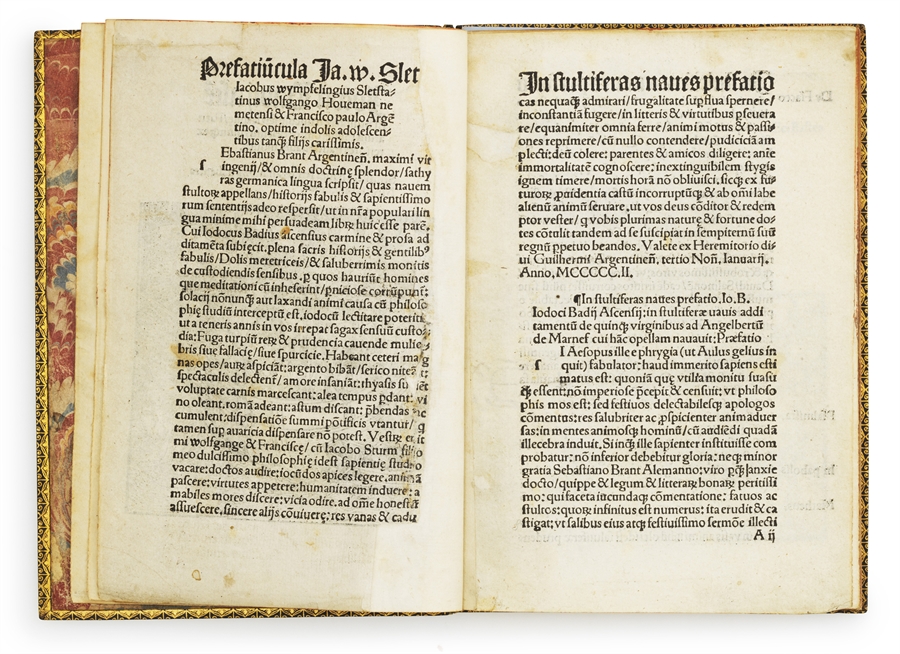 Prefatiūcula Ja. w. Slet
Iacobus wympfelingius Sletsta-
tinus wolfgango Houeman ne
metensi & Francisco paulo Argē
tino. optime indolis adolescen-
tibus tanꝗ̃ filijs carissimis.
Ebastianus Brant Argentineñ. maximi vir
ſ ingenij/& omnis doctrine splendor/sathy
ras germanica lingua scripsit/ quas nauem
stultoꝝ appellans/historijs fabulis & sapientissimo
rum sententijs adeo respersit/ut in nr̃a populari lin
gua minime mihi persuadeam libꝝ huic esse parē.
Cui Iodocus Badius ascensius carmine & prosa ad
ditamēta subiecit. plena sacris historijs & gentilibꝰ
fabulis/Dolis metretriceis/& saluberrimis monitis
de custodiendis sensibus. ꝑ quos hauriūt homines
que meditationi cū inheserint/ꝑniciose corrūpunt:
solacij nonnunꝗ̃ aut laxandi animi causa cū philoso
phię studiū interceptū est. iodocū lectitare poteritis
ut a teneris annis in vos irrepat sagax sensuū custo-
dia: Fuga turpiū reꝝ & prudencia cauende mulie-
bris siue fallacię/siue spurcicie. Habeant ceteri mag
nas opes/auꝝ aspiciāt: argento bibāt/serico nitent
spectaculis delectent̃/amore insaniāt: rhyasis su
voluptate carnis marcescant: alea tempus ꝑdant: vi
no oleant. romā adeant: astum discant: p̃bendas
cumulent: dispensatiōe summi pōtificis vtantur/ q
tamen suꝑ auaricia dispensare nō potest. Vestꝝ erit
mi wolfgange & Francisce/ cū Iacobo Sturm filio
meo dulcissimo philosophię idest sapientie studio
vacare: doctos audire: iocūdos apices legere. animā
pascere: virtutes appetere: humanitatem induere: a
mabiles mores discere: vicia odire. ad om̃e honestū
assuescere. sincere alijs cōuiuere: res vanas & cadu
In stultiferas naues prefatio
cas nequaꝗ̃ admirari/frugalitate suꝑflua spernere/
inconstantiā fugere/in litteris & virtutibus ꝑseuera
re/equanimiter omnia ferre/animi motus & passi-
ones reprimere/cū nullo contendere/pudiciciā am
plecti: deū colere: parentes & amicos diligere: anie
immortalitatē cognoscere: inextinguibilem stygis
ignem timere/mortis horā nō obliuisci, sicꝗ ex fu-
turoꝝ ꝓuidentia castū incorruptūꝗ & ab om̃i labe
alienū animū seruare. ut vos deus cōditor & redem
ptor vester/ ꝗ vobis plurimas naturę & fortune do-
tes cōtulit tandem ad se suscipiat in sempiternū suū
regnū ꝑpetuo beandos. Valete ex Heremitorio di-
ui Guilhermi Argentineñ. tertio Noñ. Ianuarij.
Anno. MCCCCC.II.
¶In stultiferas naues prefatio. Io. B.
Iodoci Badij Ascensij: in stultiferæ nauis addi
tamentū de quinꝗ virginibus ad Angelbertū
de Marnef cui hāc opellam nauauit: Præfatio
I Aesopus ille e phrygia (ut Aulus gelius in
ſ quit) fabulator: haud immerito sapiens esti
matus est: quoniā quę vtilia monitu suasu
ꝗ essent: nō imperiose p̃cepit & censuit: vt philoso
phis mos est: sed festiuos delectabilesꝗ apologos
cōmentus: res salubriter ac ꝓspicienter animaduer
sas: in mentes animosꝗ hominū/ cū audiēdi quadā
illecebra induit. Si inꝗ̃ ille sapienter instituisse com
probatur: nō inferior debebitur gloria: neꝗ minor
gratia Sebastiano Brant Alemanno: viro ꝓfecto
docto/quippe & legum & litteraꝝ bonaꝝ peritissi
mo: qui faceta iucundaꝗ cōmentatione: fatuos ac
stultos: quoꝝ infinitus est numerus: ita erudit & ca
stigat: vt salibus eius atꝗ festiuissimo sermōe illecti
A ij